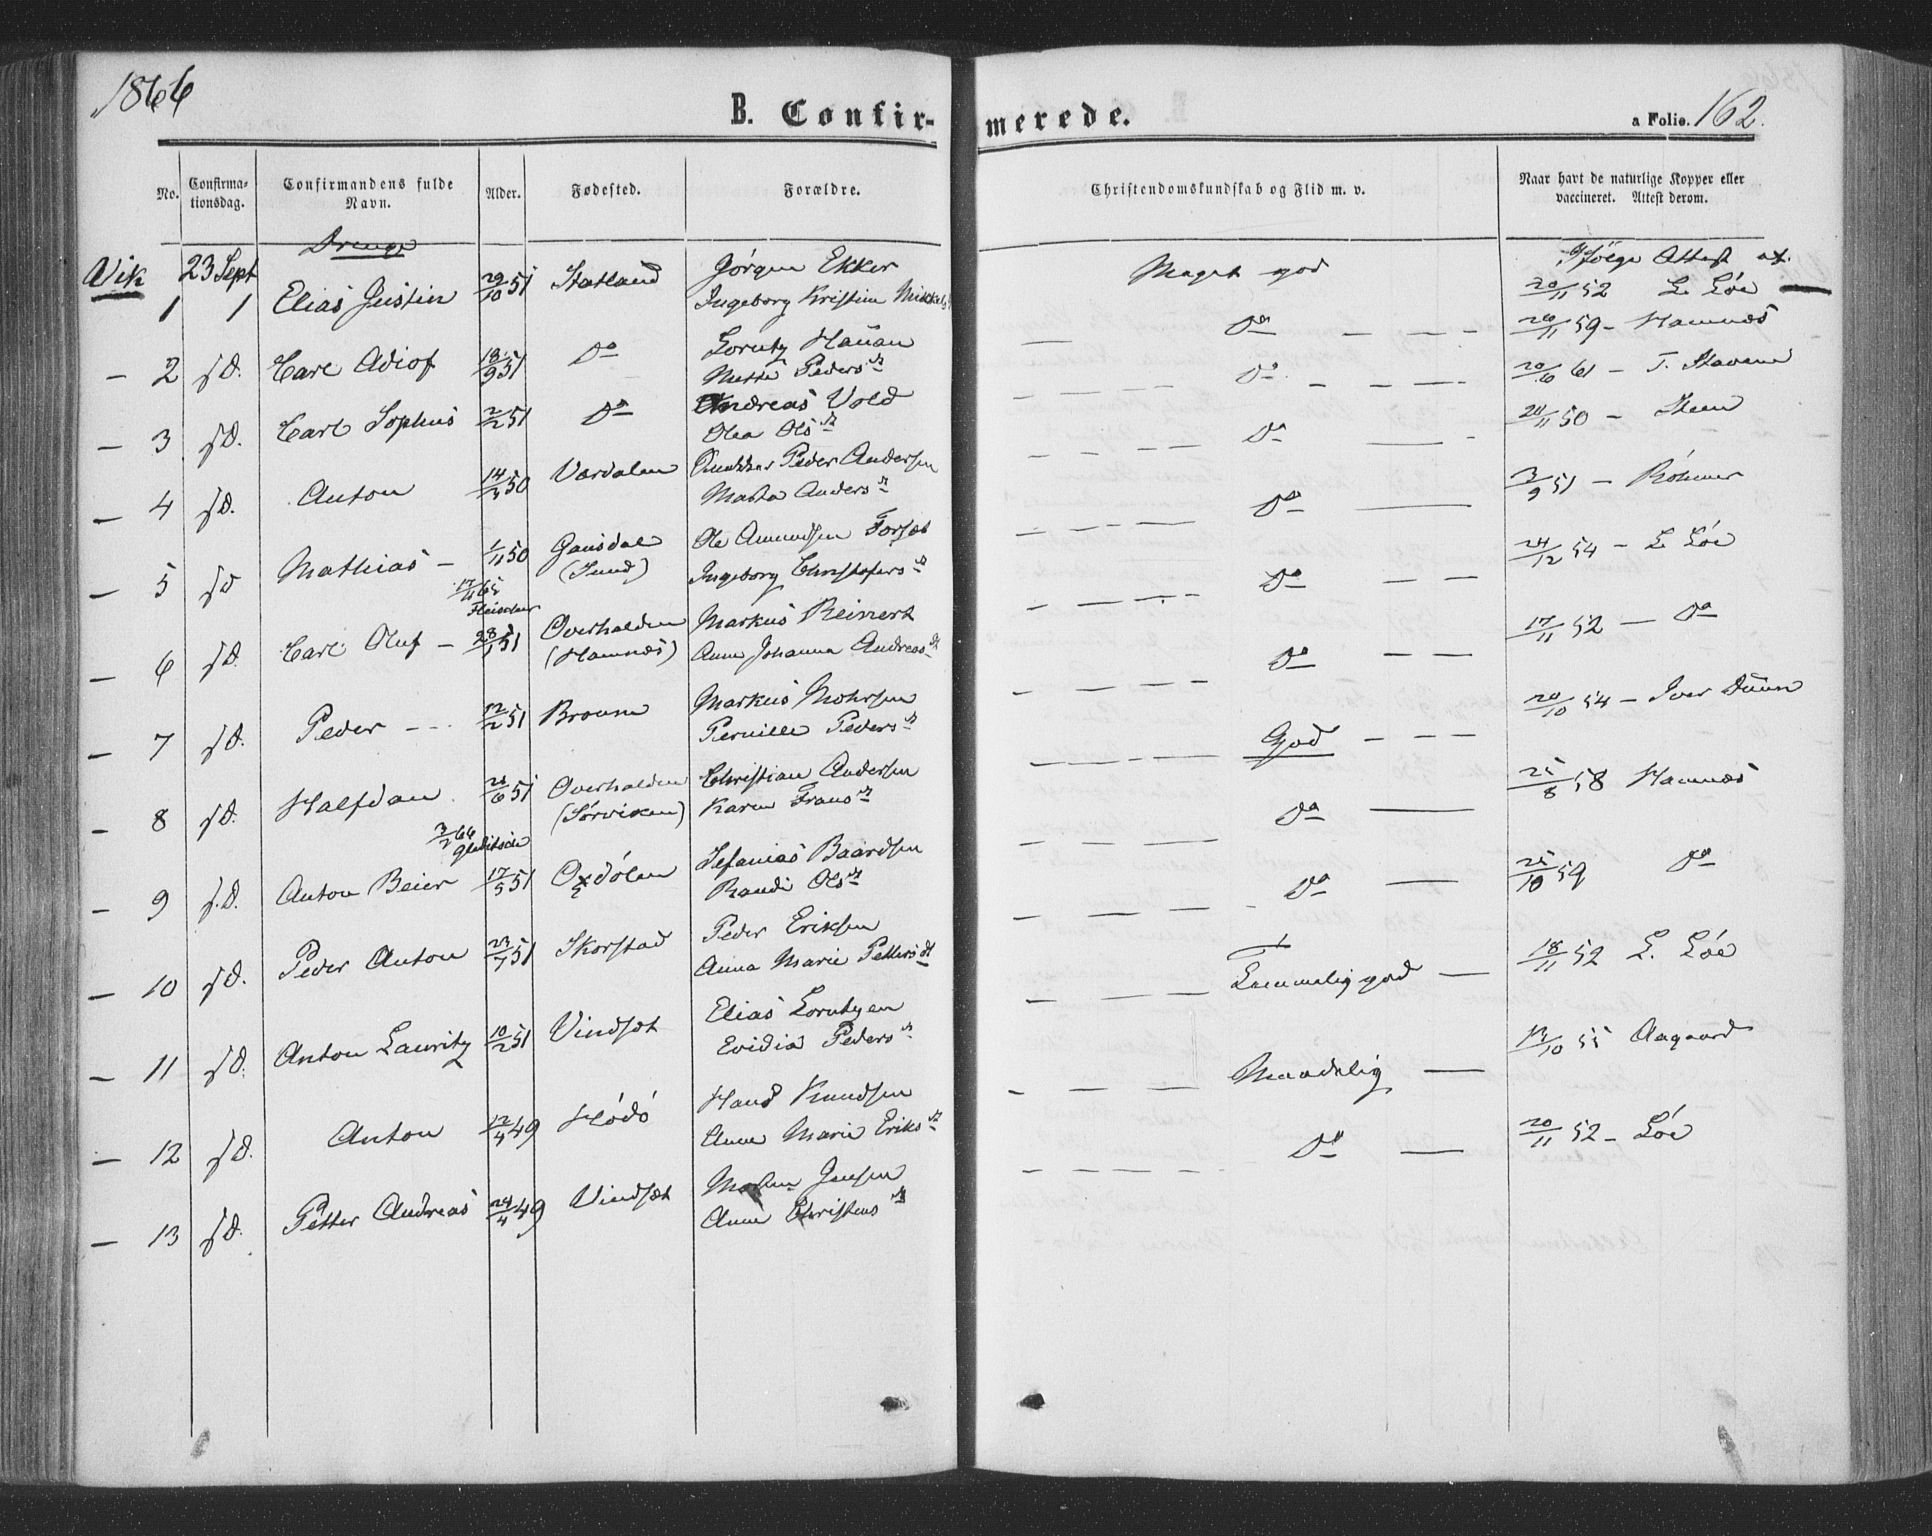 1866
B. Confir-
merede.
a Folio. 162.
No.
Confirma-
tionsdag.
Confirmandens fulde
Navn.
Alder.
Fødested.
Forældre.
Christendomskundskab og Flid m. v.
Naar havt de naturlige Kopper eller
vaccineret. Attest derom.
Drenge
Vik 23 Sept
Ifølge Attest af
1 1 Elias Justin 29/10 51 Statland Jörgen Ekker
Ingeborg Kristine Mikkels
Meget god 20/11 52 L. Löe
— 2 s.D. Carl Adiof 18/9 51 Do Lorntz Haüan
Mette Pedersdt
Do 26/11 59 – Hamnæs
— 3 s.D. Carl Sophus 2/2 51 Do Andreas Vold
Olea Olsdt
Do 20/6 61 – T. Stavene
— 4 s.D. Anton 14/3 50 Værdalen Peder Andersen
Marta Andersdt
Do 20/11 50 – Steen
— 5 s.D. Mathias – 1/11 50 Gansdal Ole Amundsen Forset
(Sund) Ingeborg Christofersdt
Do 3/9 51 – Röhmer
17/11 65
Fleischer
— 6 s.D. Carl Oluf – 28/1 51 Overhalden Markus Reinert
(Hamnæs) Anne Johanna Andreasdt
Do 24/12 54 – L Löe
— 7 s.D. Peder – – 12/2 51 Broum Markus Mohrsen
Pernille Pedersdt
Do 17/11 52 – Do
— 8 s.D. Halfdan 21/6 51 Overhalden Christian Andersen
(Sørviken) Karen Fransdt
God 20/10 54 – Iver Düun
3/2 66
Gladitsch
— 9 s.D. Anton Beier 17/5 51 Oxdölen Sefanias Baardsen
Randi Olsdt
Do 25/8 58 Hamnæs
— 10 s.D. Peder Anton 23/7 51 Skorstad Peder Eriksen
Anna Marie Pettersdt
Do 25/10 59 Do
— 11 s.D. Anton Lauritz 10/2 51 Vindset Elias Lorntzen
Evidia Pedersdt
Temmelig god 18/11 52 L. Löe
— 12 s.D. Anton 12/4 49 Hödö Hans Knudsen
Anne Marie Eriksdt
Maadelig 13/10 55 Aagaard
— 13 s.D. Petter Andreas 24/4 49 Vindset Jensen
Anne Christensdt
Do 20/11 52 – Löe